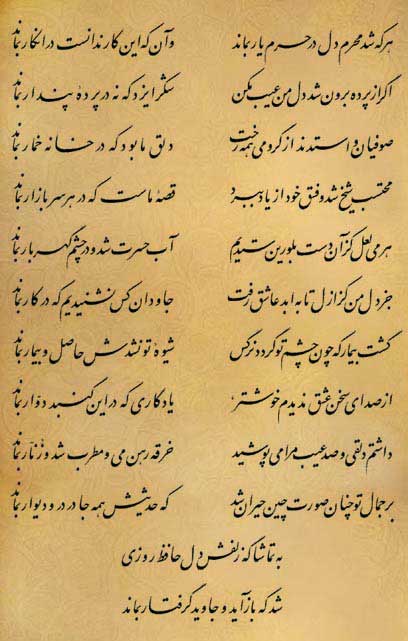 هر که شد محرم دل در حرم یار بماند وآن که این کار ندانست در انکار بماند
اگر از پرده برون شد دل من عیب مکن شکر ایزد که نه در پردهٔ پندار بماند
صوفیان واستدند از گرو می همه رخت دلق ما بود که در خانه خمار بماند
محتسب شیخ شد و فسق خود از یاد ببرد قصهٔ ماست که در هر سر بازار بماند
هر می لعل کز آن دست بلورین ستدیم آب حسرت شد و در چشم گهربار بماند
جز دل من کز ازل تا به ابد عاشق رفت جاودان کس نشنیدیم که در کار بماند
گشت بیمار که چون چشم تو گردد نرگس شیوهٔ تو نشدش حاصل و بیمار بماند
از صدای سخن عشق ندیدم خوشتر یادگاری که در این گنبد دوار بماند
داشتم دلقی و صد عیب مرا می پوشید خرقه رهن می و مطرب شد و زنار بماند
بر جمال تو چنان صورت چین حیران شد که حدیثش همه جا در در و دیوار بماند
به تماشاگه زلفش دل حافظ روزی
شد که بازآید و جاوید گرفتار بماند